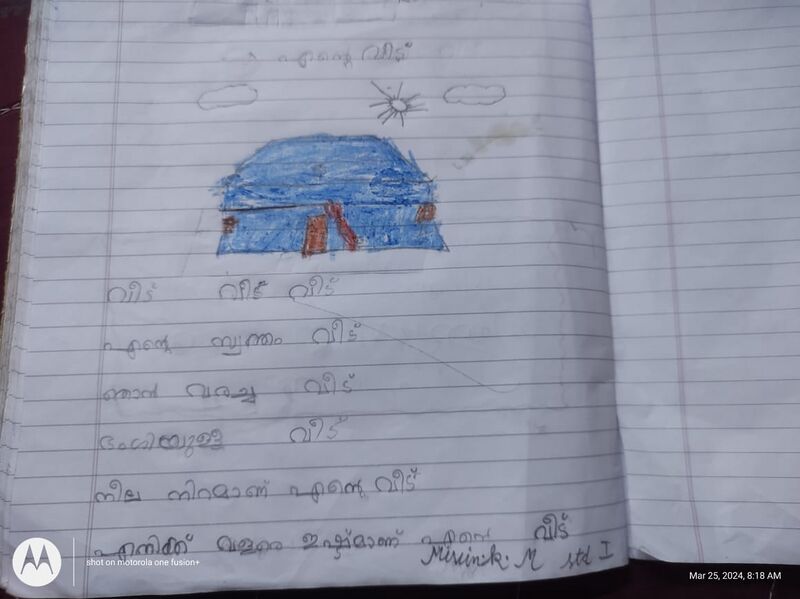 എന്റെ വീട്
വീട് വീട് വീട്
എന്റെ സ്വന്തം വീട്
ഞാൻ വരച്ച വീട്
ഭംഗിയുള്ള വീട്
നീല നിറമാണ് എന്റെ വീട്
എനിക്ക് വളരെ ഇഷ്ടമാണ് എന്റെ വീട്
M std I
shot on motorola one fusion+
Mar 25, 2024, 8:18 AM